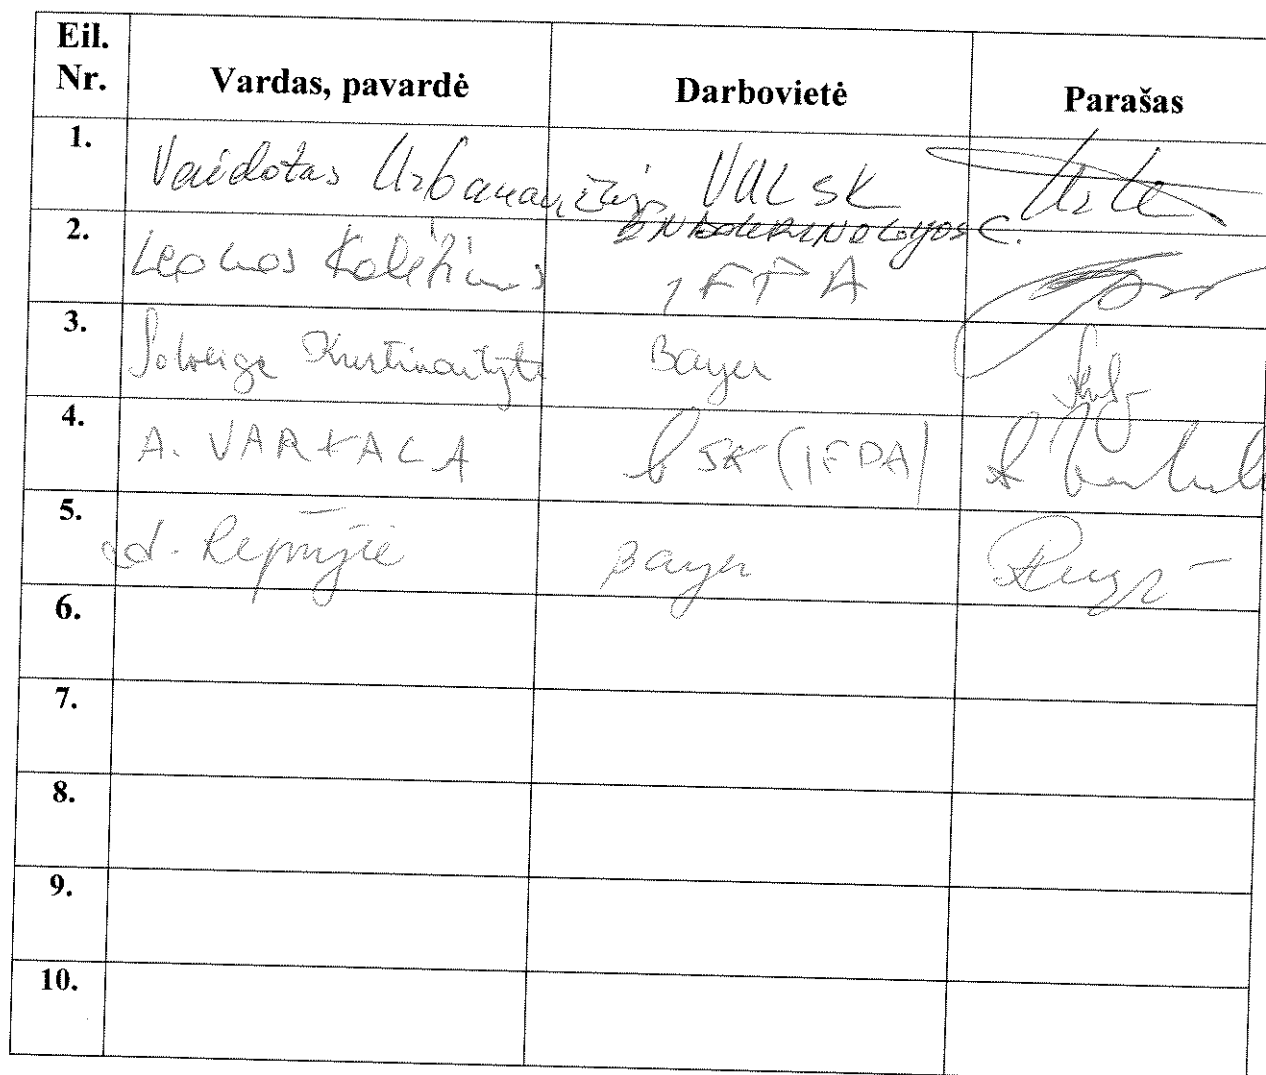 Eil. Nr. Vardas, pavardė Darbovietė Parašas
1. Vaidotas Urbanavičius VUL SK
ENDOKRINOLOGIJOS C.
2. Leonas Kalėtinas IFPA
3. Solveiga Kurtinaitytė Bayer
4. A. VARKALA GSK (IFPA)
5. Bayer
6.
7.
8.
9.
10.